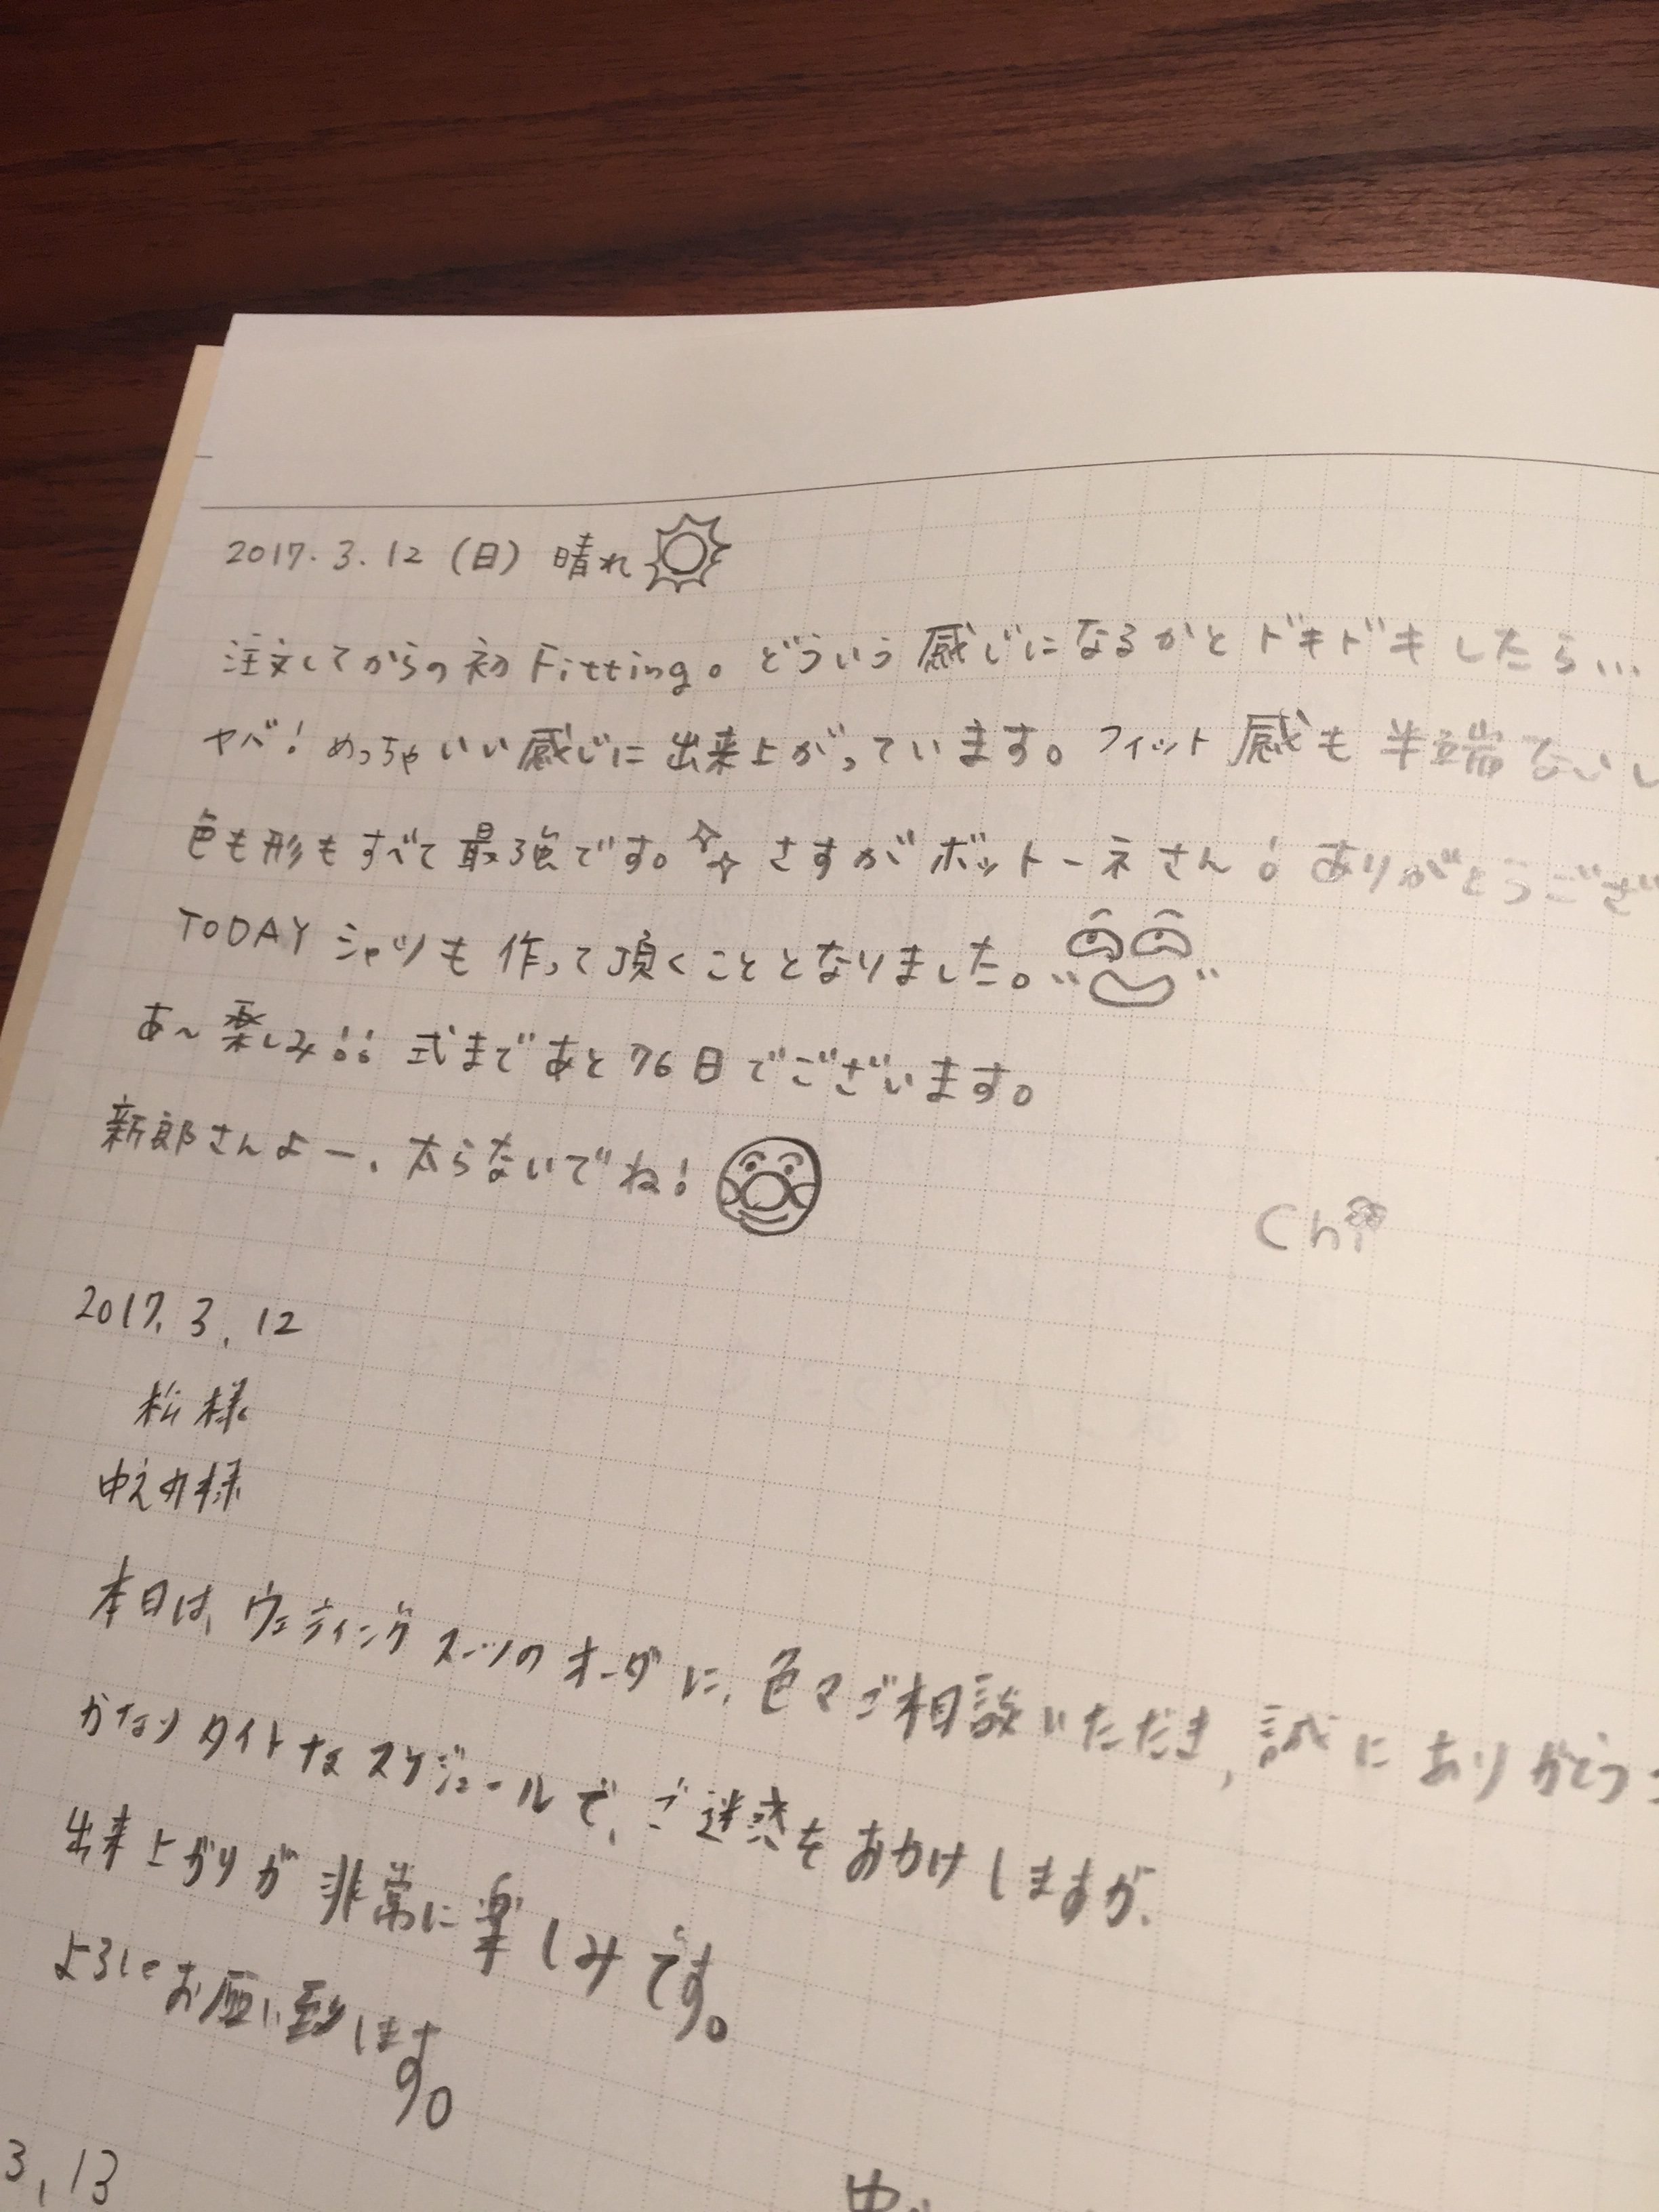 2017.3.12(日) 晴れ
注文してからの初Fitting。どういう感じになるかとドキドキしたら...
ヤベ!めっちゃいい感じに出来上がっています。フィット感も半端ないし
色も形もすべて最強です。さすがボットーネさん!ありがとうござい
TODAYシャツも作って頂くこととなりました。
あ~楽しみ!!式まであと76日でございます。
新郎さんよー、太らないでね!
Chi
2017.3.12
松様
様
本日は、ウェディングスーツのオーダに、色々ご相談いただき、誠にありがとうご
かなりタイトなスケジュールで、ご迷惑をおかけしますが、
出来上がりが非常に楽しみです。
よろしくお願い致します。
3,13